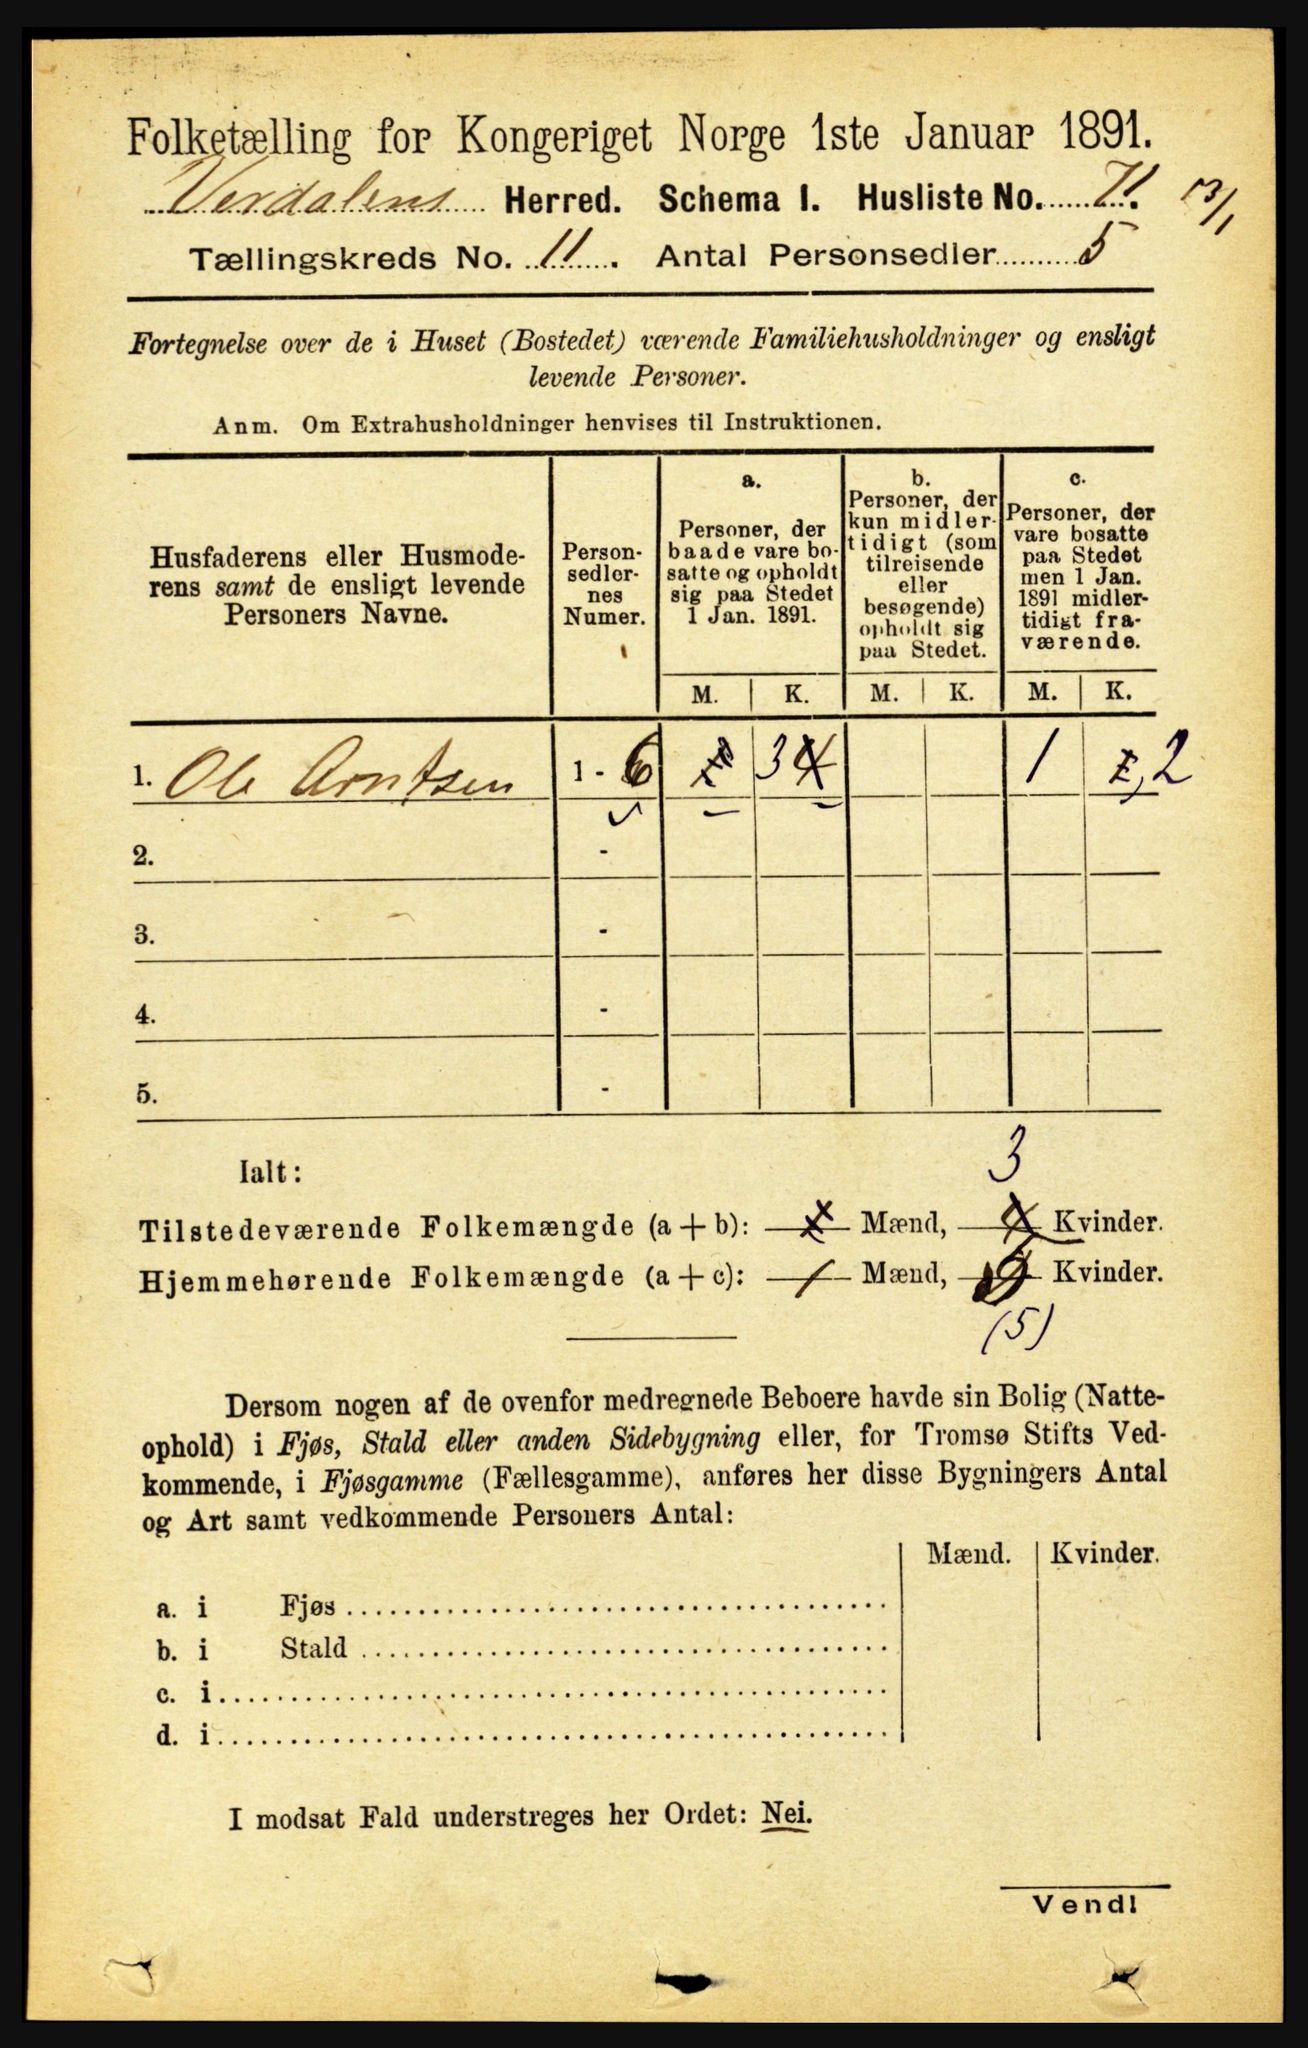 Folketælling for Kongeriget Norge 1ste Januar 1891.
Verdalens Herred. Schema I. Husliste No. 71. 13/1
Tællingskreds No. 11. Antal Personsedler 5
Fortegnelse over de i Huset (Bostedet) værende Familiehusholdninger og ensligt
levende Personer.
Anm. Om Extrahusholdninger henvises til Instruktionen.
Husfaderens eller Husmode-
rens samt de ensligt levende
Personers Navne.
Person-
sedler-
nes
Numer.
a.
Personer, der
baade vare bo-
satte og opholdt
sig paa Stedet
1 Jan. 1891.
b.
Personer, der
kun midler-
tidigt (som
tilreisende
eller
besøgende)
opholdt sig
paa Stedet.
c.
Personer, der
vare bosatte
paa Stedet
men 1 Jan.
1891 midler-
tidigt fra-
værende.
M. K. M. K. M. K.
1. Ole Arntsen 1 - 6 3 4 1 2
2. -
3. -
4. -
5. -
Ialt: 3
Tilstedeværende Folkemængde (a + b): Mænd, 4 Kvinder.
Hjemmehørende Folkemængde (a + c): 1 Mænd, Kvinder.
(5)
Dersom nogen af de ovenfor medregnede Beboere havde sin Bolig (Natte-
ophold) i Fjøs, Stald eller anden Sidebygning eller, for Tromsø Stifts Ved-
kommende, i Fjøsgamme (Fællesgamme), anføres her disse Bygningers Antal
og Art samt vedkommende Personers Antal:
Mænd. Kvinder.
a. i Fjøs
b. i Stald
c. i
d. i
I modsat Fald understreges her Ordet: Nei.
Vend!